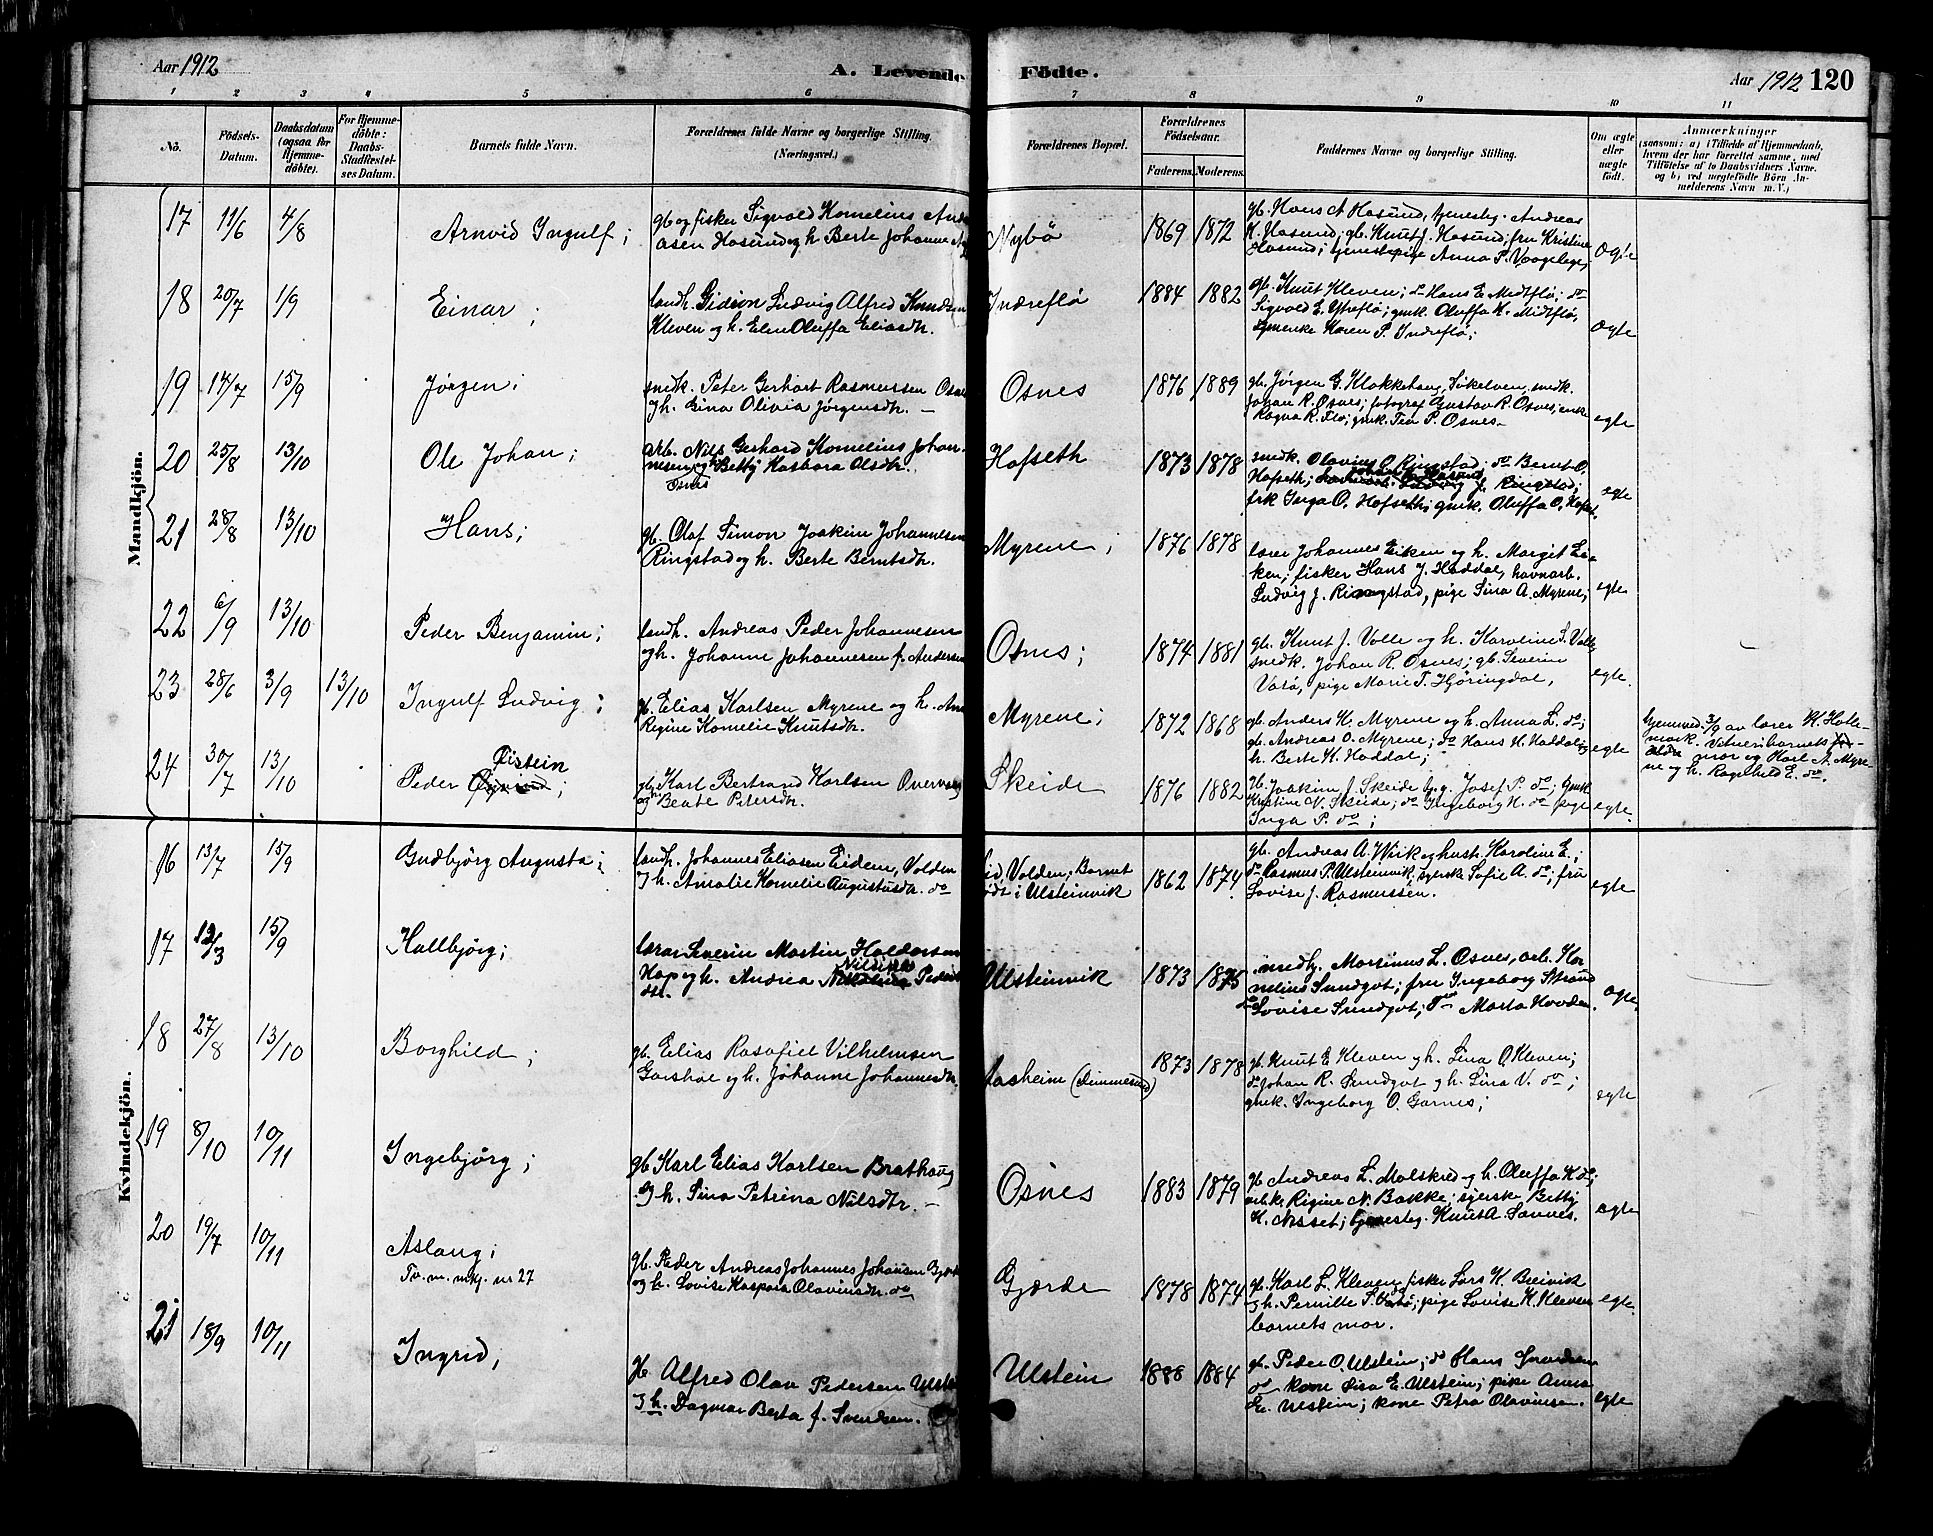 Aar 1912
A. Levende Födte.
Aar 1912 120
1 2 3 4 5 6 7 8 9 10 11
No.
Födsels-Datum.
Daabsdatum (ogsaa for Hjemme-döbte).
For Hjemme-döbte: Daabs-Stadfæstel-ses Datum.
Barnets fulde Navn.
Forældrenes fulde Navne og borgerlige Stilling.
(Næringsvei.)
Forældrenes Bopæl.
Forældrenes Födselsaar.
Faderens. Moderens.
Faddernes Navne og borgerlige Stilling.
Om ægte eller uægte født.
Anmærkninger
(saasom: a) i Tilfælde af Hjemmedaab, hvem der har forrettet samme, med Tilføielse af to Daabsvidners Navne, og b) ved uægtefödte Börn Anmelderens Navn m. V.)
Mandkjön.
17 11/6 4/8 Arnvid Ingulf;
gb og fisker Sigvald Kornelius And
asen Hasund og h Berte Johanne
Nybö 1869 1872
gb. Hans A Hasund, tjenestg. Andreas
K. Hasund; gb. Knut J. Hasund; fru Kristine
Hasund; tjenestepige Anna P. Vaagelege;
ogte
18 20/7 1/9 Einar;
landh. Gideon Ludvig Alfred Knudsen
Kleven og h. Elen Oluffa Eliasdtr.
Indreflö 1884 1882
gb. Knut Kleven; do Hans E. Midtflö; do
Sigvald E. Ytreflö; gmk. Oluffa K. Midtflö,
Karen P. Indreflö;
ægte
19 14/7 15/9 Jørgen;
snedk. Peter Gerhart Rasmussen Osnes
og h. Gina Olivia Jörgensdtr.
Osnes 1876 1889
gb. Jörgen G. Klokkehaug, Sökelven, snedk.
Johan R. Osnes; fotograf Gustav R. Osnes; enke
Ragna R. Flö; gmk. Tea P. Osnes
egte
20 25/8 13/10 Ole Johan;
arb. Nils Gerhard Kornelius Johan-
nesen og h Betty Karbara Olsdtr.
Osnes
Hofseth 1873 1878
snedk. Olavius O. Ringstad; do Bernt O.
Hofseth; Ludvig J. Ringstad;
frk Inga O. Hofseth; gmk. Oluffa O. Hofset.
egte
21 28/8 13/10 Hans;
gb. Olaf Simon Joakim Johannesen
Ringstad og h. Berte Berntsdtr.
Myrene; 1876 1878
lærer Johannes Eiken og h. Margit Ei-
ken; fisker Hans J. Haddal, havnarb.
Ludvig J. Ringstad, pige Sina A. Myrene;
egte
22 6/9 13/10 Peder Benjamin;
landh. Andreas Peder Johannesen
og h. Johanne Johannesen f. Andersen
Osnes; 1874 1881
gb. Knut J. Volle og h. Karoline S. Volle,
snedk. Johan R. Osnes; gb. Severin
Vatö, pige Marie T. Hjöringdal,
egte.
23 28/6 3/9 13/10 Ingulf Ludvig;
gb. Elias Karlsen Myrene og h. Ane
Regine Kornelie Knutsdtr.
Myrene; 1872 1868
gb. Anders K. Myrene og h. Anna L. do;
gb. Andreas O. Myrene; do Hans H. Haddal og
h. Berte K. Haddal;
egte
Hjemmed. 3/9 av lærer K. Holle-
Vitner: barnets
mor og Karl A. Myre-
ne og h. Ragnhild E. do.
24 30/7 13/10 Peder Øistein;
gb. Karl Bertrand Karlsen
og h. Beate Petersdtr.
Skeide 1876 1882
gb. Joakim J. Skeide Josef P. do; gmk
Kristine N. Skeide; do Ingeborg H. do pige
Inga P. do;
egte.
Kvindekjön.
16 13/7 15/9 Gudbjörg Augusta;
landh. Johannes Eliasen Eidem, Volden
og h. Amalie Kornelie Augustusdtr. do
Volden; Barnet
i Ulsteinvik 1862 1874
gb. Andreas A. Wiik og hustr. Karoline E.;
do Rasmus P. Ulsteinvik; syerske Sofie A. do; fru
Lovise J. Rasmussen.
egte
17 13/3 15/9 Hallbjörg;
lærer Severin Martin Haldorsen
Hap og h. Andrea Nilsine Peders
dtr.
Ulsteinvik 1873 1875
Marsinus L. Osnes, arb. Kor-
nelius Sundgot; fru Ingeborg Strand
Lovise Sundgot; Marta Hovden
egte.
18 27/8 13/10 Borghild;
gb. Elias Rasafiel Vilhelmsen
Garshol og h. Johanne Johannesdtr.
Aasheim (Dimmesund) 1873 1878
gb. Knut E Kleven og h. Lina O. Kleven;
do Johan R. Sundgot og h. Lina V. do;
gmk. Ingeborg O. Garnes;
egte
19 8/10 10/11 Ingebjörg;
gb. Karl Elias Karlsen Brathaug
og h. Sina Petrina Nilsdtr.
Osnes 1883 1879
gb Andreas L. Molskred og h. Oluffa K do;
enke Rigine N. Bakke; syerske Betty
K. Nesset; tjenestg. Knut A. Sannes.
egte
20 19/7 10/11 Aslaug;
Tv. m. mkj. nr 27
gb. Peder Andreas Johannes Johansen Gjærde
og h. Lovise Kaspara Olavinsdtr. do
Gjærde 1878 1874
gb. Karl L. Kleven, fisker Lars K. Breivik
og h. Pernille S. Vatö; pige Lovise K. Kleven
barnets mor.
egte
21 18/9 10/11 Ingrid,
gb. Alfred Olav Pedersen Ulstein
og h. Dagmar Berta f. Svendsen.
Ulstein 1888 1884
gb. Peder O. Ulstein; do Hans Svendsen
do kone Lisa E. Ulstein; pike Anna
E. Ulstein; kone Petra Olavinsen.
egte